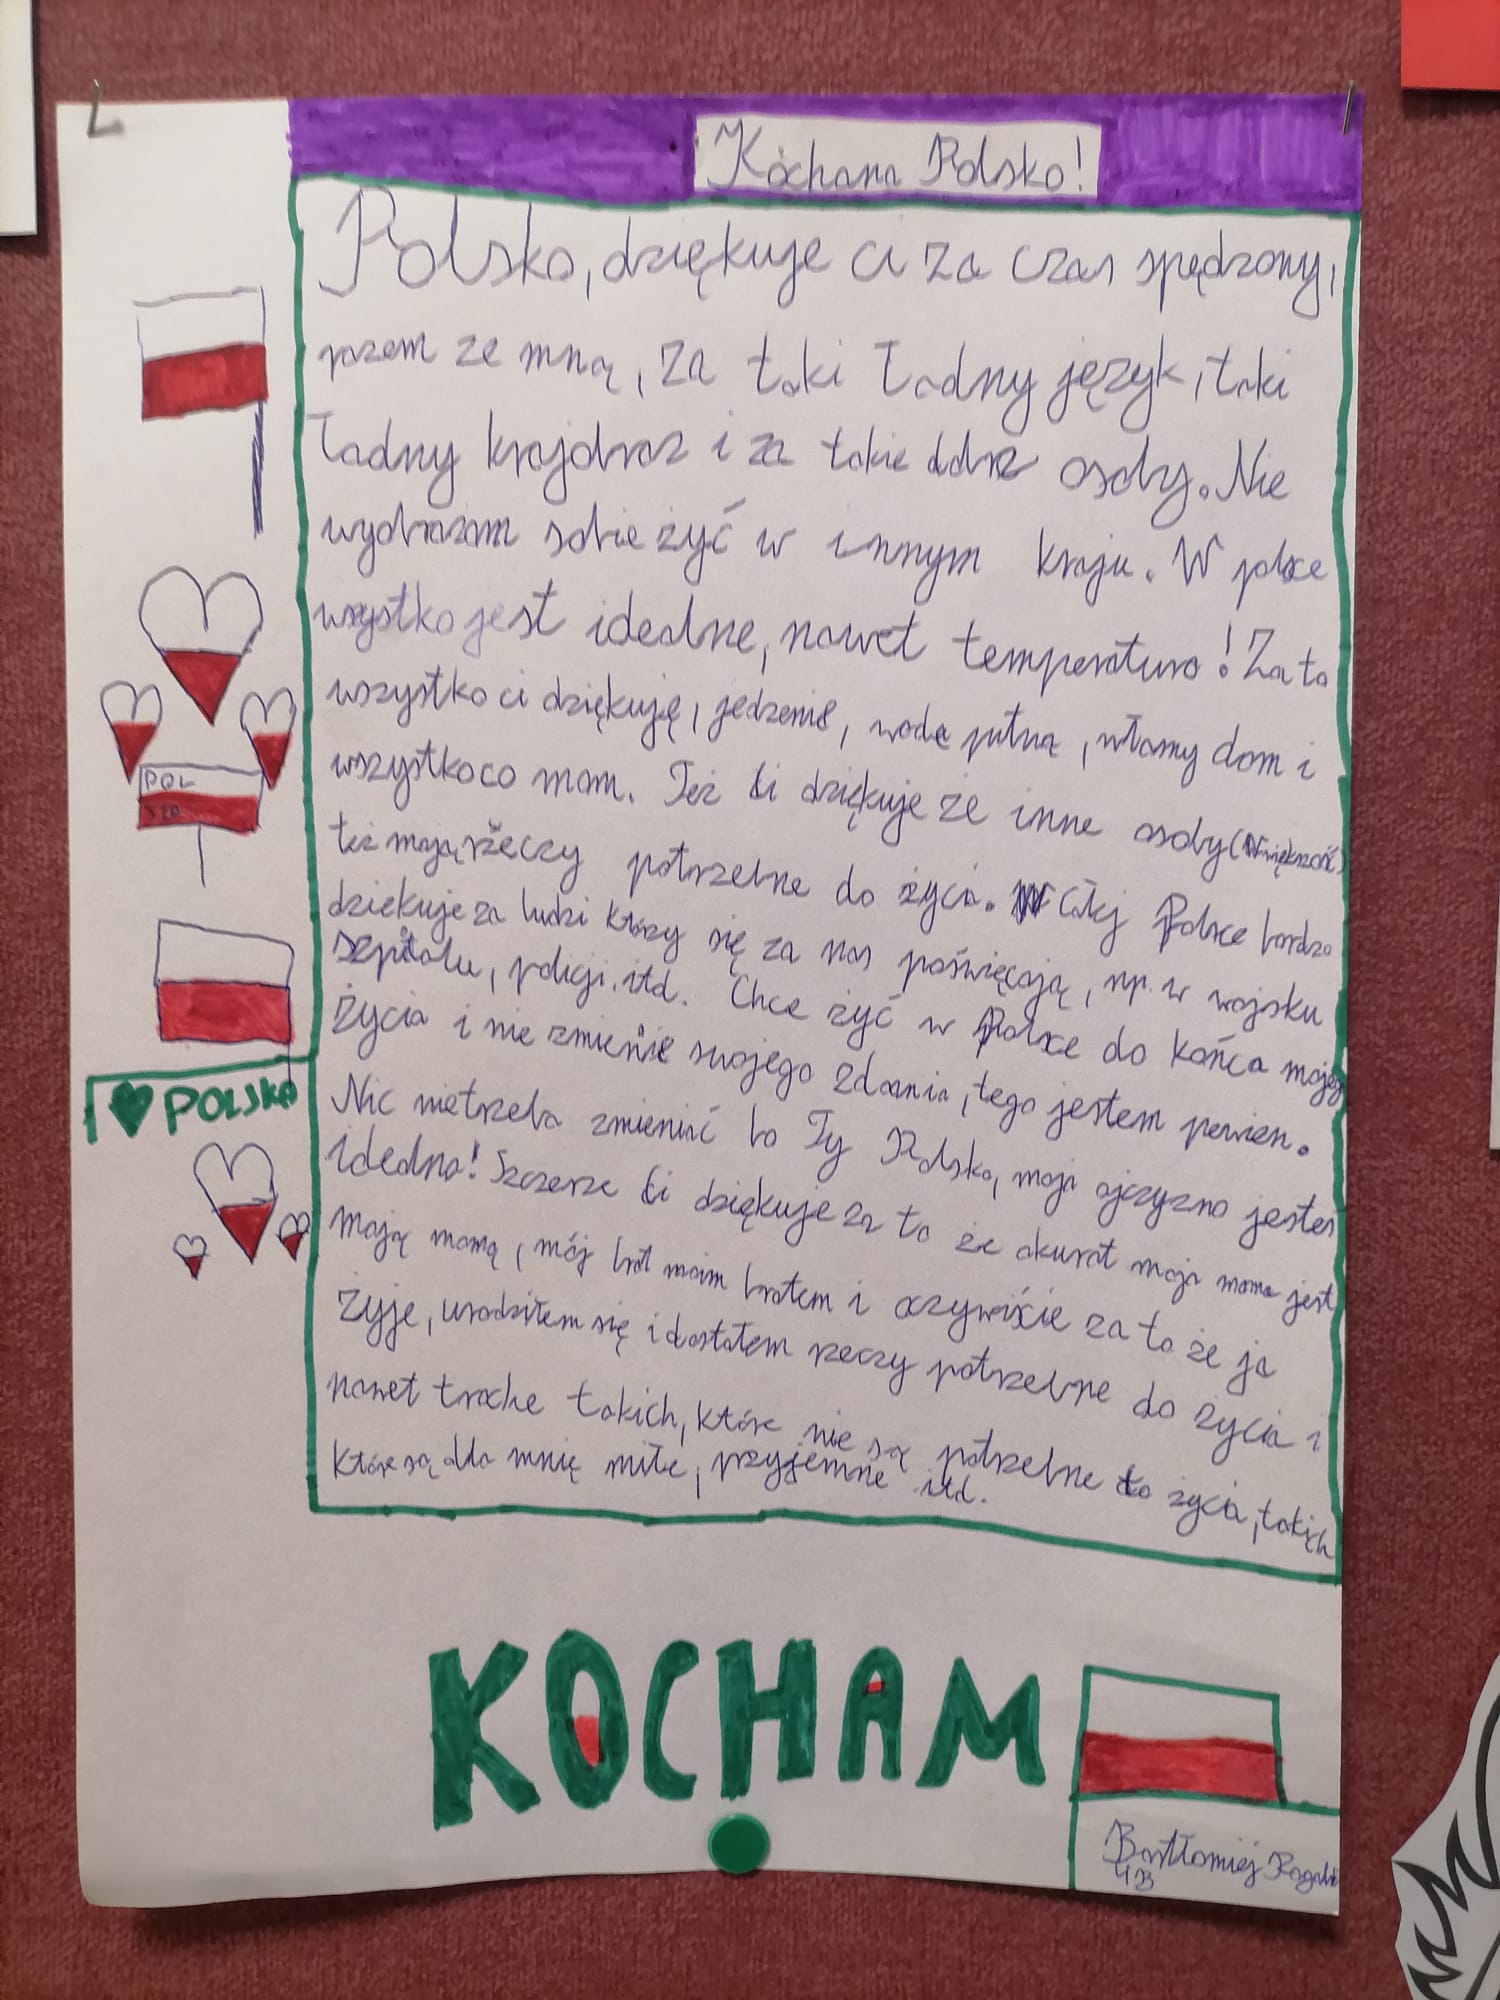 Kochana Polsko!
Polsko, dziękuje ci za czas spędzony,
razem ze mną, za taki ładny język, taki
ładny krajobraz i za takie dobre osoby. Nie
wyobrażam sobie żyć w innym kraju. W polsce
wszystko jest idealne, nawet temperatura! Za to
wszystko ci dziękuję, jedzenie, wode pitną, własny dom i
wszystko co mam. Też Ci dziękuje że inne osoby (Większość)
też mają rzeczy potrzebne do życia. Całej Polsce bardzo
dziekuje za ludzi którzy się za nas poświęcają, np. w wojsku
szpitalu, policji, itd. Chce żyć w Polsce do końca mojego
życia i nie zmienie swojego zdania, tego jestem pewien.
Nic nietrzeba zmieniać bo Ty Polsko, moja ojczyzno jesteś
idealna! Szczerze Ci dziękuje za to że akurat moja mama jest
moją mamą, mój brat moim bratem i oczywiście za to że ja
żyje, urodziłem się i dostałem rzeczy potrzebne do życia i
nawet troche takich, które nie są potrzebne do życia, takich
które są dla mnię miłe, przyjemne itd.
POL
SKA
I POLSKA
KOCHAM
Bartłomiej
4B